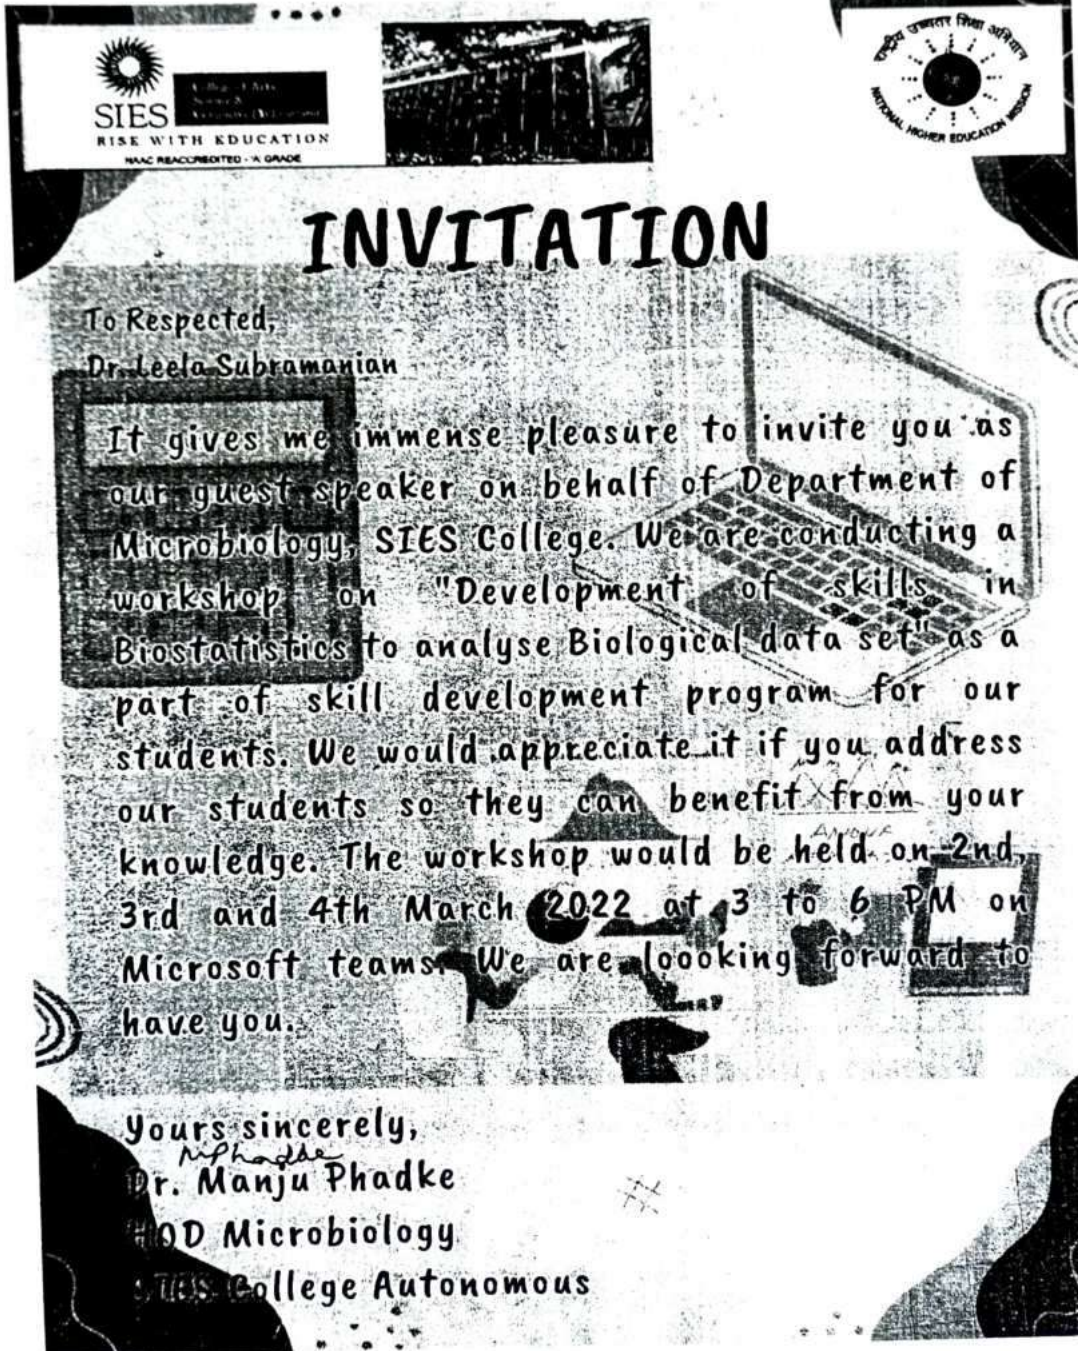 SIES
College of Arts
Science &
RISE WITH EDUCATION
NAAC REACCREDITED - 'A' GRADE
राष्ट्रीय उच्चतर शिक्षा अभियान
NATIONAL HIGHER EDUCATION MISSION
INVITATION
To Respected,
Dr. Leela Subramanian
It gives me immense pleasure to invite you as
our guest speaker on behalf of Department of
Microbiology, SIES College. We are conducting a
workshop on "Development of skills in
Biostatistics to analyse Biological data set" as a
part of skill development program for our
students. We would appreciate it if you address
our students so they can benefit from your
knowledge. The workshop would be held on 2nd,
3rd and 4th March 2022 at 3 to 6 PM on
Microsoft teams. We are loooking forward to
have you.
Yours sincerely,
MPhadke
Dr. Manju Phadke
HOD Microbiology
SIES College Autonomous